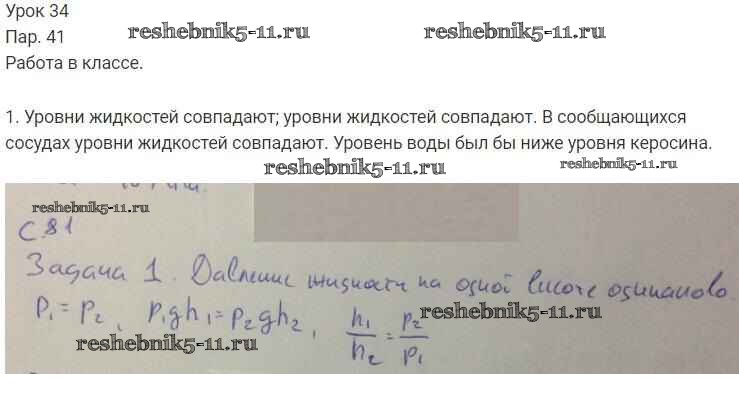 Урок 34
Пар. 41
reshebnik5-11.ru reshebnik5-11.ru
Работа в классе.
1. Уровни жидкостей совпадают; уровни жидкостей совпадают. В сообщающихся
сосудах уровни жидкостей совпадают. Уровень воды был бы ниже уровня керосина.
reshebnik5-11.ru reshebnik5-11.ru
reshebnik5-11.ru
С. 81
Задача 1. Давление жидкости на одной высоте одинаково.
p₁ = p₂, p₁gh₁ = p₂gh₂, h₁/h₂ = p₂/p₁
reshebnik5-11.ru
reshebnik5-11.ru